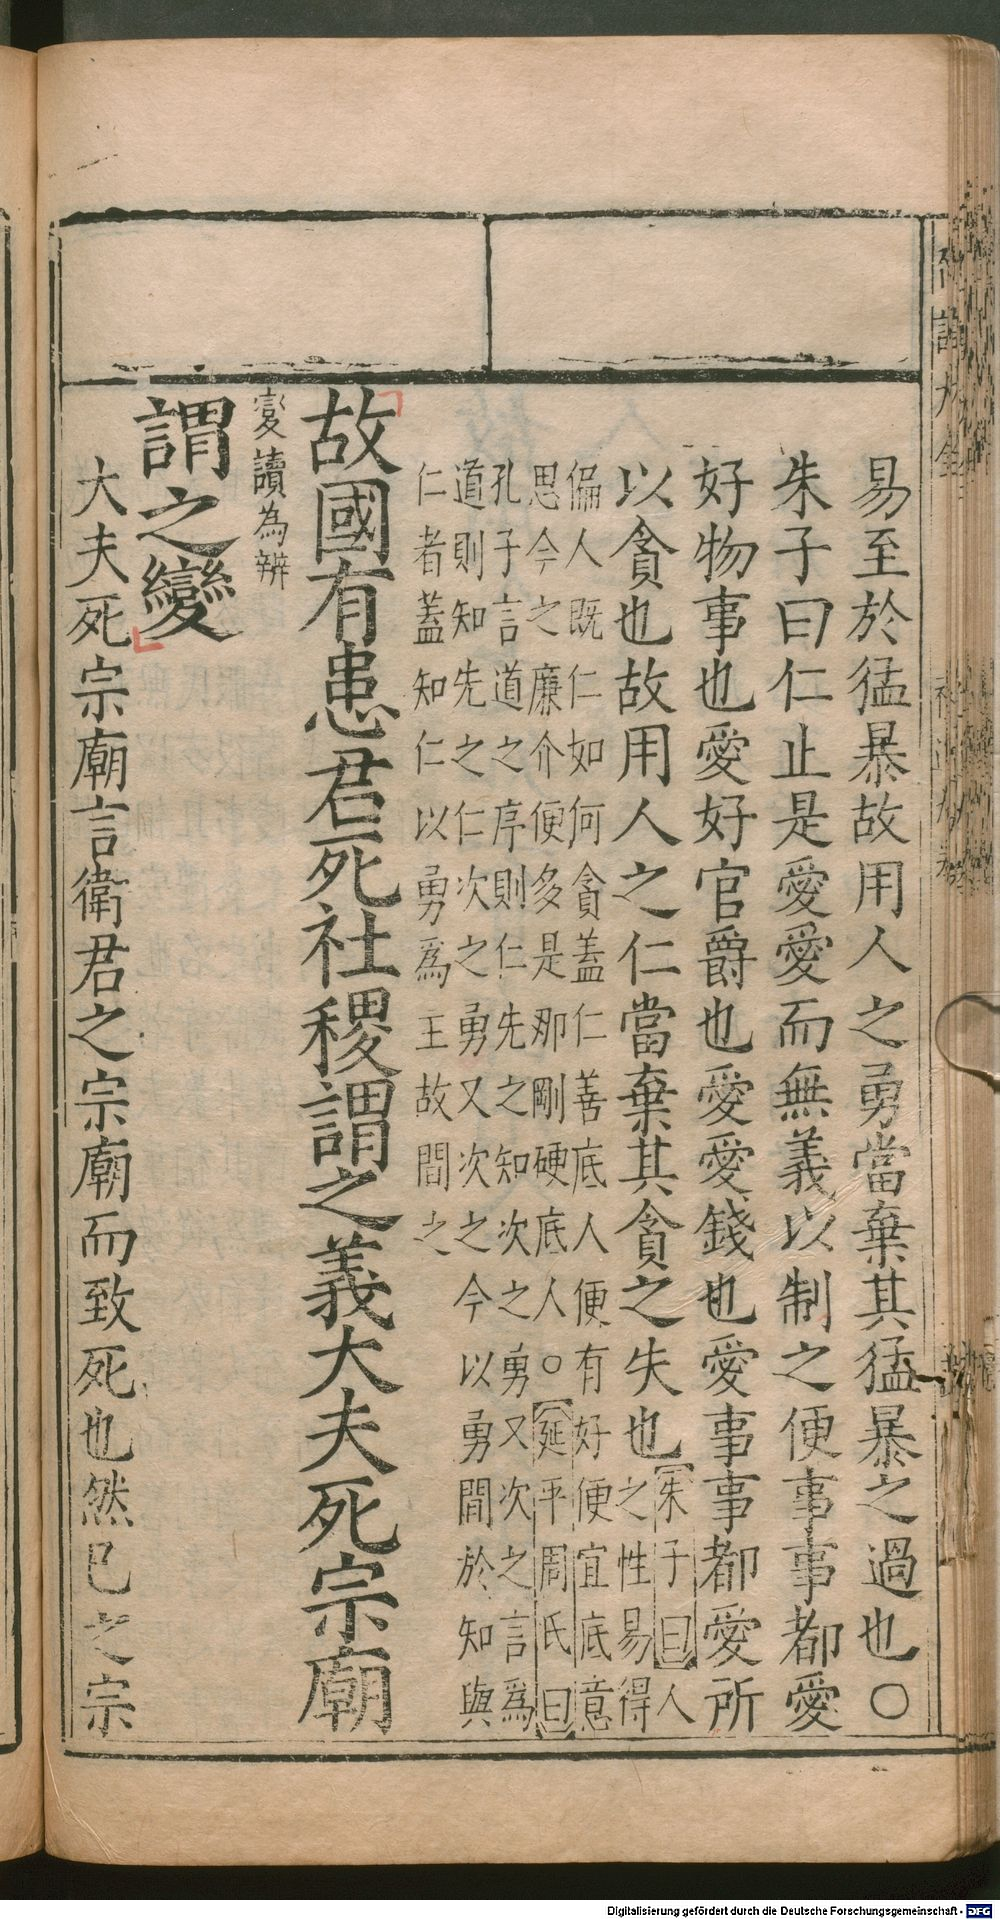 易至於猛暴故用人之勇當棄其猛暴之過也○
朱子曰仁止是愛愛而無義以制之便事事都愛
好物事也愛好官爵也愛愛錢也愛事事都愛所
以貪也故用人之仁當棄其貪之失也
朱子曰人
之性易得
偏人既仁如何貪蓋仁善底人便有好便宜底意
思今之廉介便多是那剛硬底人○延平周氏曰
孔子言道之序則仁先之知次之勇又次之言為
道則知先之仁次之勇又次之今以勇間於知與
仁者蓋知仁以勇爲王故間之
故國有患君死社稷謂之義大夫死宗廟
變讀為辨
謂之變
大夫死宗廟言衛君之宗廟而致死也然己之宗
Digitalisierung gefördert durch die Deutsche Forschungsgemeinschaft - DFG